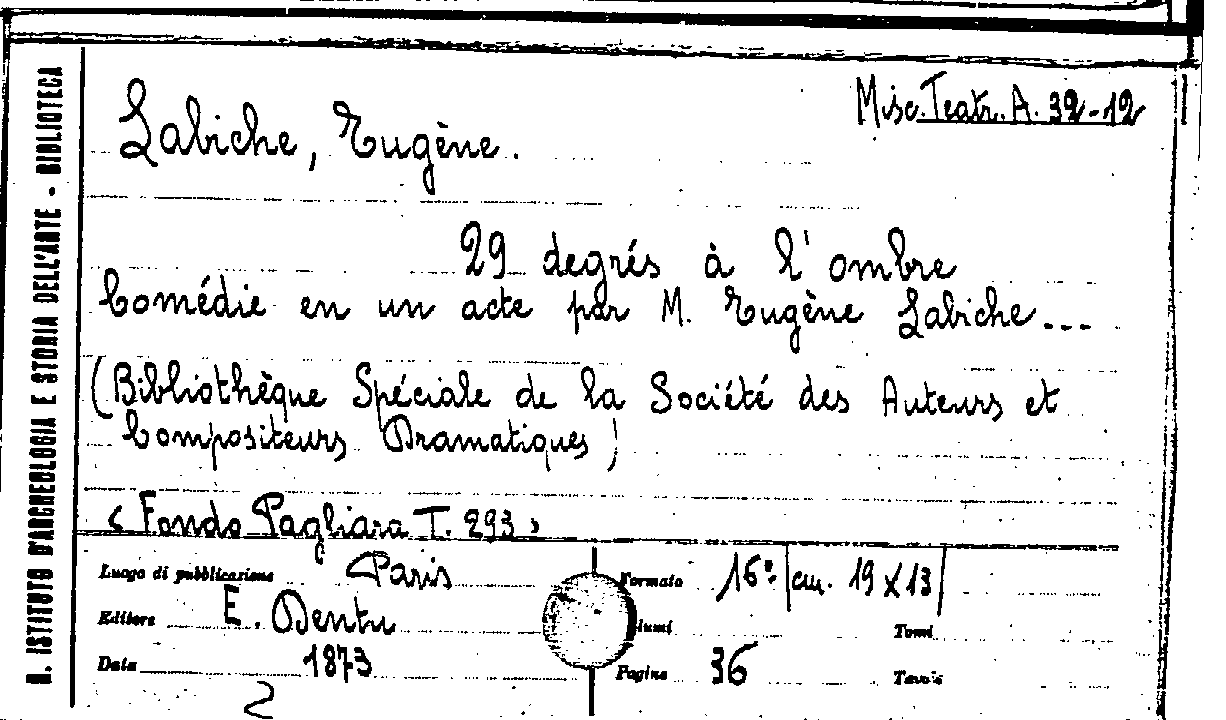 R. ISTITUTO D'ARCHEOLOGIA E STORIA DELL'ARTE - BIBLIOTECA
Misc. Teatr. A. 32-12
Labiche, Eugène.
29 degrés à l'ombre
Comédie en un acte par M. Eugène Labiche...
(Bibliothèque Spéciale de la Société des Auteurs et
Compositeurs Dramatiques)
< Fondo Pagliara T. 293 >
Luogo di pubblicazione Paris Formato 16º |cm. 19 x 13|
Editore E. Dentu lumi Tomi
Data 1873 Pagine 36 Tavole
2